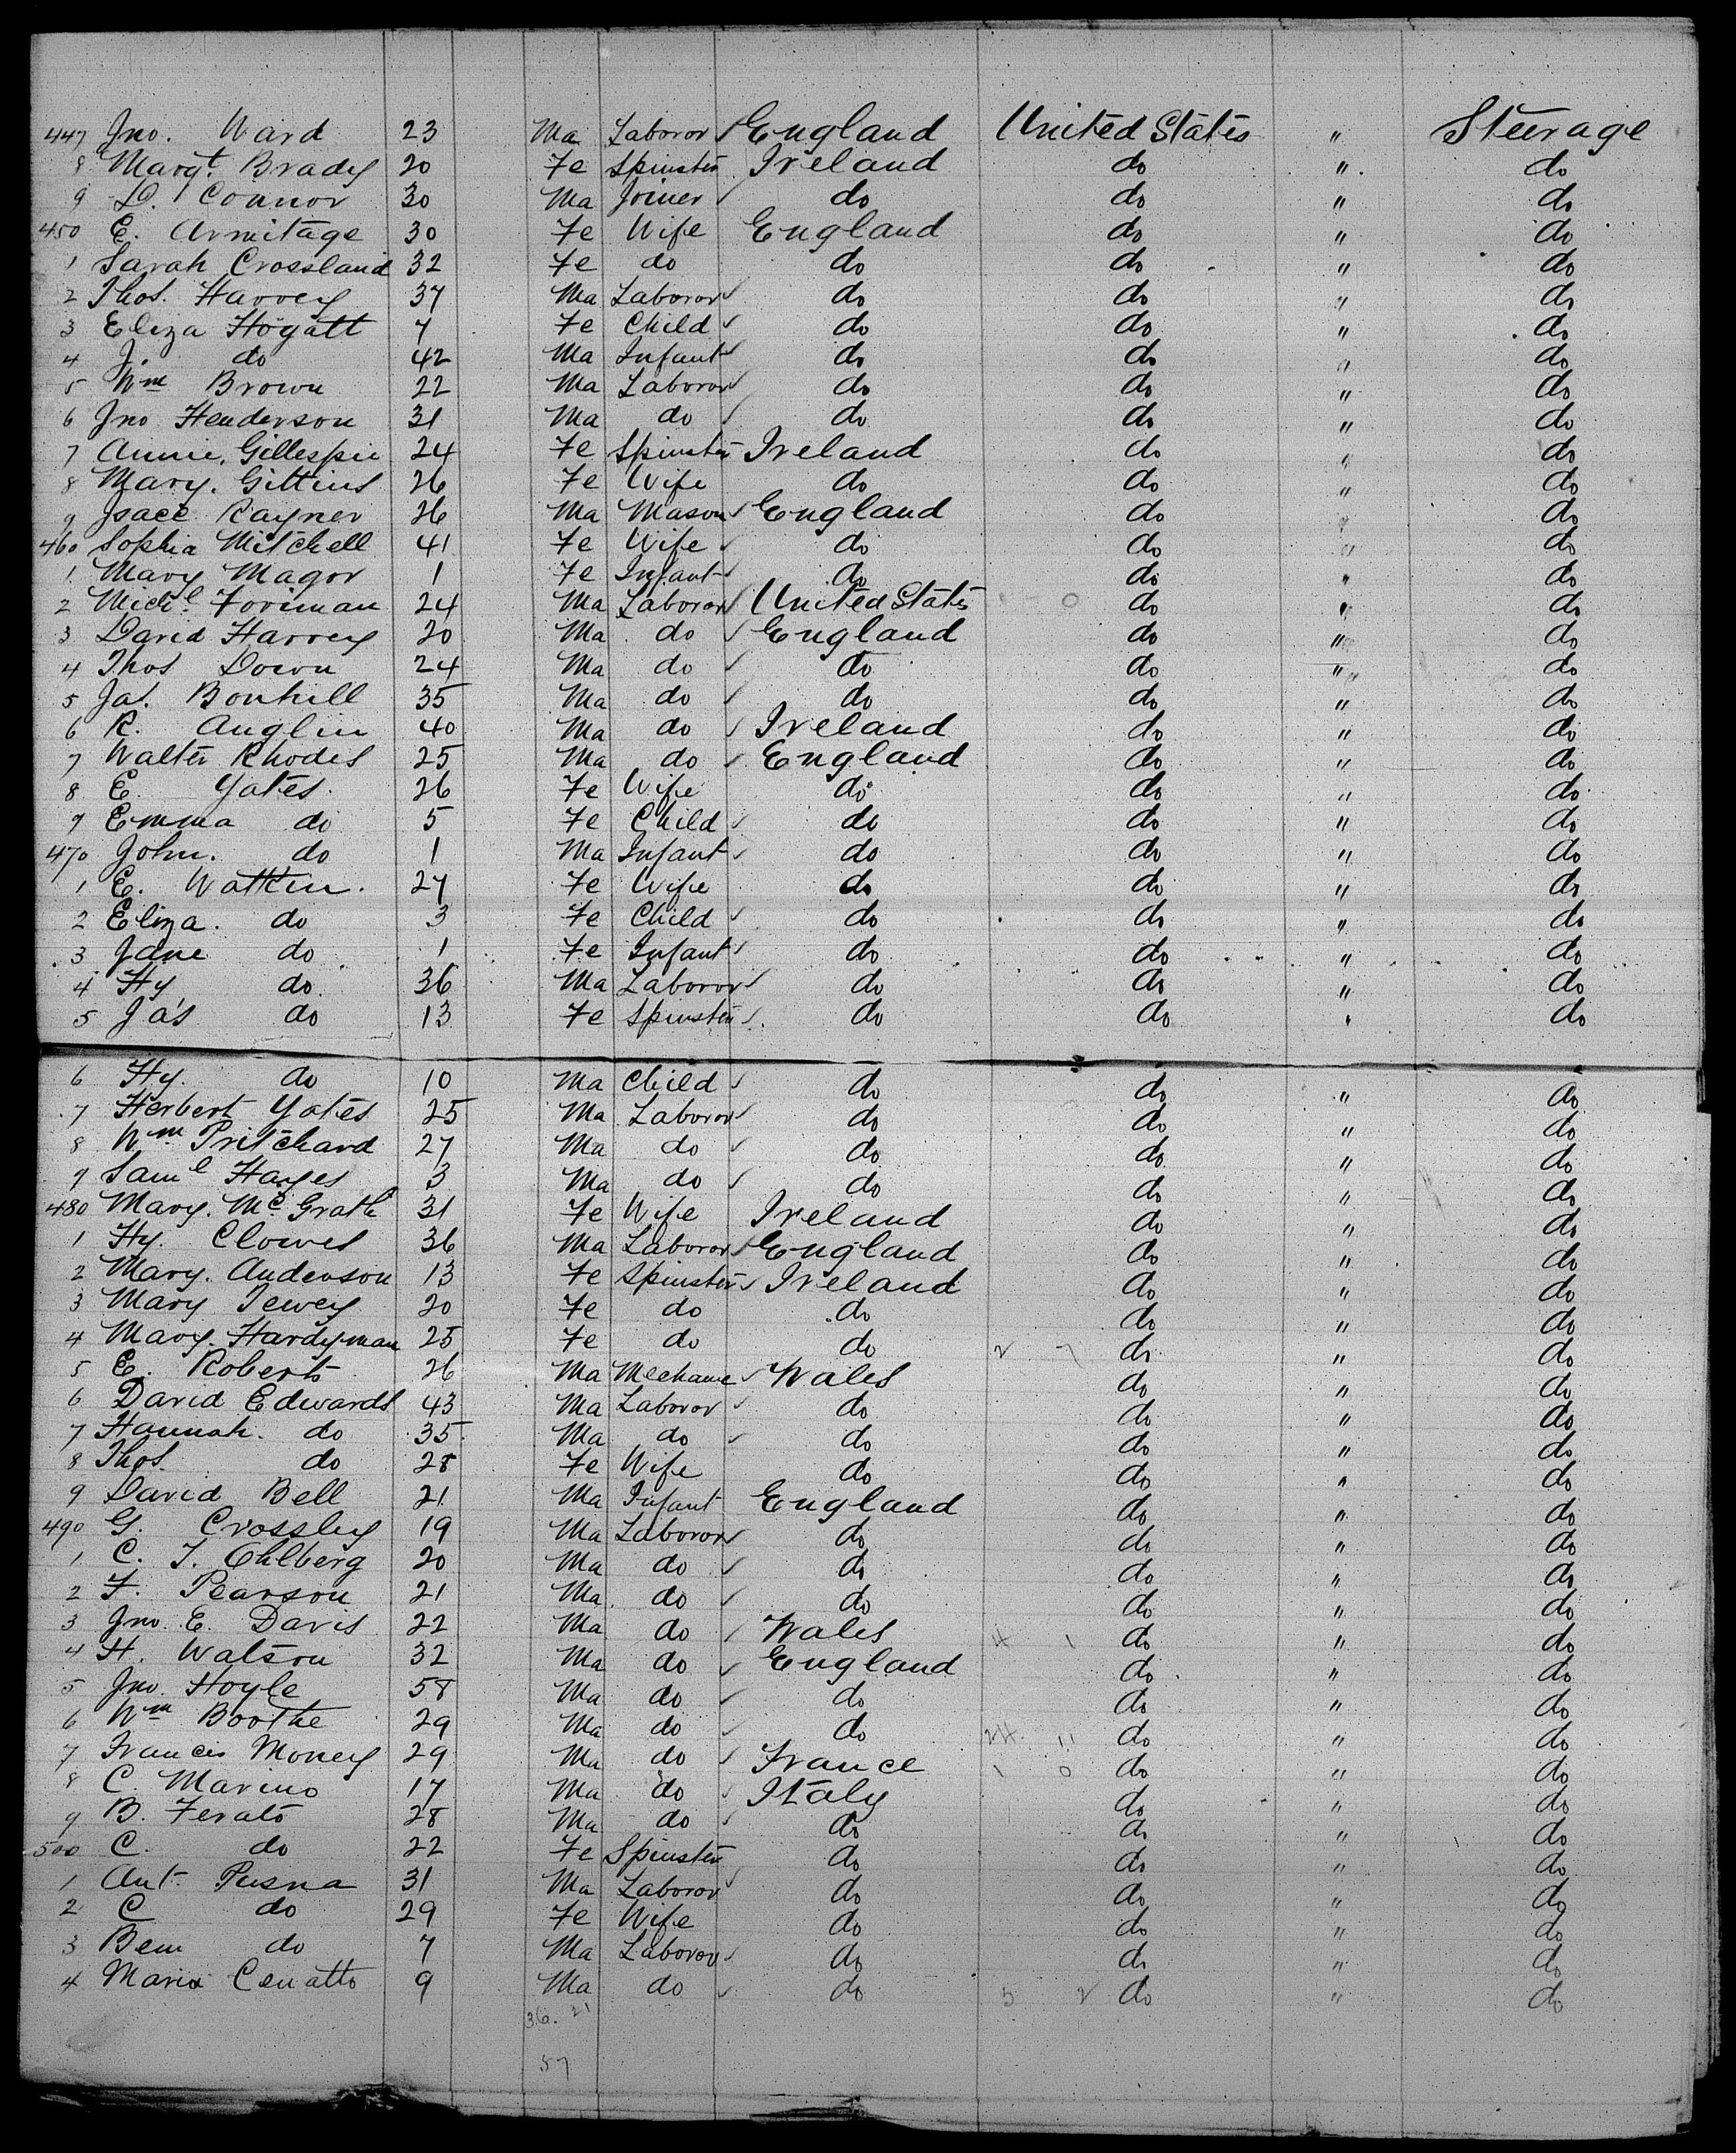 447 Jno. Ward 23 Ma Laboror ✓ England United States " Steerage
8 Margt. Brady 20 Fe Spinster Ireland do " do
9 D. Connor 30 Ma Joiner ✓ do do " do
450 E. Armitage 30 Fe Wife England do " do
1 Sarah Crossland 32 Fe do do do " do
2 Thos. Harvey 37 Ma Laboror ✓ do do " do
3 Eliza Hogatt 7 Fe Child ✓ do do " do
4 J. do 42 Ma Infant ✓ do do " do
5 Wm Brown 22 Ma Laboror ✓ do do " do
6 Jno Henderson 31 Ma do ✓ do do " do
7 Annie. Gillespie 24 Fe Spinster Ireland do " do
8 Mary. Gittins 26 Fe Wife do do " do
9 Isace Rayner 26 Ma Mason ✓ England do " do
460 Sophia Mitchell 41 Fe Wife ✓ do do " do
1 Mary Magor 1 Fe Infant ✓ do do " do
2 Michl. Foriman 24 Ma Laboror ✓ United States 0 do " do
3 David Harvey 20 Ma do ✓ England do " do
4 Thos Down 24 Ma do ✓ do do " do
5 Jas. Bonhill 35 Ma do ✓ do do " do
6 R. Anglin 40 Ma do ✓ Ireland do " do
7 Walter Rhodes 25 Ma do ✓ England do " do
8 E. Yates. 26 Fe Wife do do " do
9 Emma do 5 Fe Child ✓ do do " do
470 John. do 1 Ma Infant ✓ do do " do
1 E. Watkin. 27 Fe Wife do do " do
2 Eliza. do 3 Fe Child ✓ do do " do
3 Jane do 1 Fe Infant ✓ do do " do
4 Hy do. 36 Ma Laboror ✓ do do " do
5 Jas do 13 Fe Spinster ✓ do do " do
6 Hy. do 10 Ma Child ✓ do do " do
7 Herbert Yates 25 Ma Laboror ✓ do do " do
8 Wm Pritchard 27 Ma do ✓ do do " do
9 Saml Hayes 3 Ma do ✓ do do " do
480 Mary. McGrath 31 Fe Wife Ireland do " do
1 Hy. Clowes 36 Ma Laboror ✓ England do " do
2 Mary. Anderson 13 Fe Spinster ✓ Ireland do " do
3 Mary Tewey 20 Fe do do do " do
4 Mary. Hardyman 25 Fe do do 2 7 do " do
5 E. Roberts 26 Ma Mechanic ✓ Wales do " do
6 David Edwards 43 Ma Laboror ✓ do do " do
7 Hannah. do 35 Ma do ✓ do do " do
8 Thos. do 28 Fe Wife do do " do
9 David Bell 21 Ma Infant England do " do
490 G. Crossley 19 Ma Laboror ✓ do do " do
1 C. J. Ohlberg 20 Ma do ✓ do do " do
2 F. Pearson 21 Ma. do ✓ do do " do
3 Jno. E. Davis 22 Ma do ✓ Wales 4 1 do " do
4 H. Watson 32 Ma do ✓ England do " do
5 Jno. Hoyle 58 Ma do ✓ do do " do
6 Wm Boothe 29 Ma do ✓ do 24 11 do " do
7 Francis Money 29 Ma do ✓ France 1 0 do " do
8 C. Marino 17 Ma do ✓ Italy do " do
9 B. Ferato 28 Ma do ✓ do do " do
500 C. do 22 Fe Spinster do do " do
1 Ant. Pusna 31 Ma Laboror ✓ do do " do
2 C do 29 Fe Wife do do " do
3 Bem do 7 Ma Laboror ✓ do do " do
4 Maria Cenatto 9 Ma do ✓ do 5 2 do " do
36. 21
57